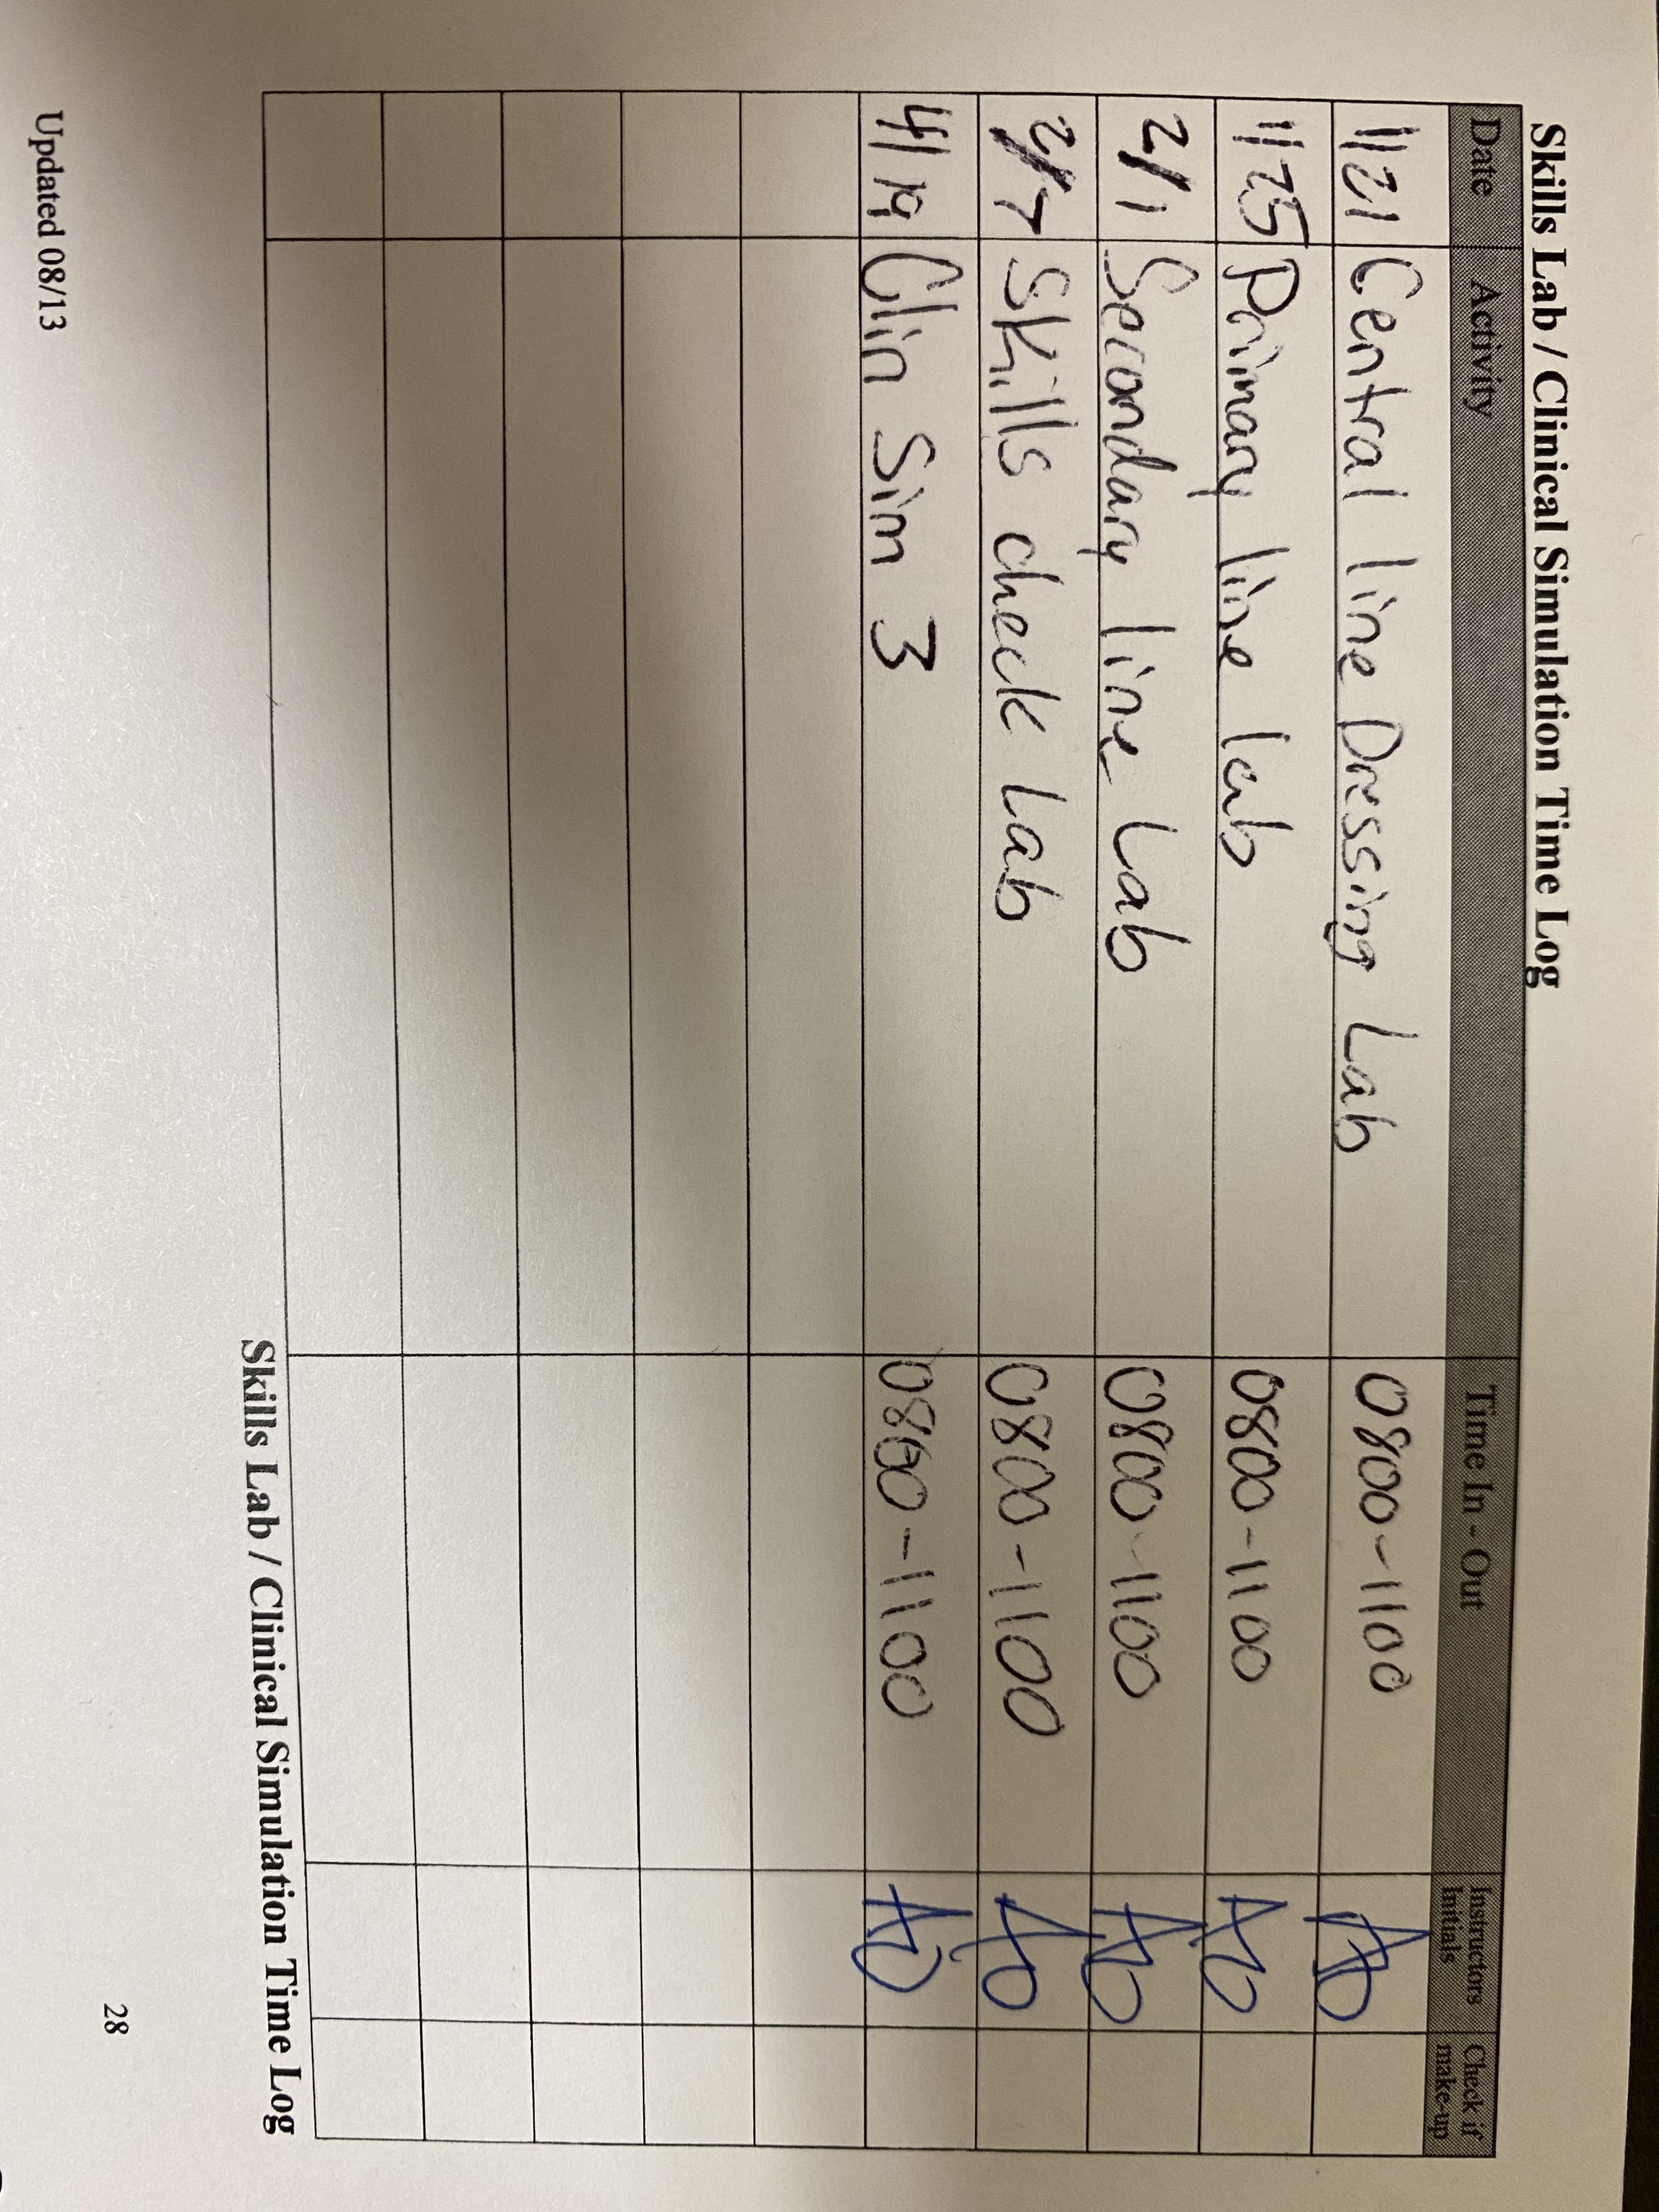 Skills Lab / Clinical Simulation Time Log
Date Activity Time In - Out Instructors Initials Check if make-up
1/21 Central line Dressing Lab 0800-1100 AD
1/25 Primary line lab 0800-1100 AD
2/1 Secondary line Lab 0800-1100 AD
2/7 Skills check Lab 0800-1100 AD
4/19 Clin Sim 3 0800-1100 AD
Skills Lab / Clinical Simulation Time Log
Updated 08/13 28